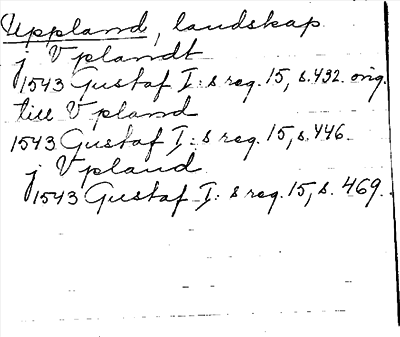 Uppland, landskap
j Vplandt
1543 Gustaf I:s reg. 15, s. 432. orig.
till Vpland
1543 Gustaf I:s reg. 15, s. 446.
j Vpland
1543 Gustaf I:s reg. 15, s. 469.